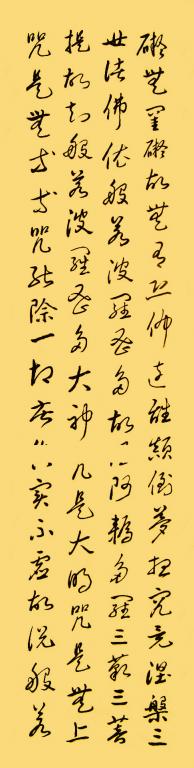 礙無罣礙故無有恐怖遠離顛倒夢想究竟涅槃三
世諸佛依般若波羅蜜多故得阿耨多羅三藐三菩
提故知般若波羅蜜多大神咒是大明咒是無上
咒是無等等咒能除一切苦真實不虛故說般若